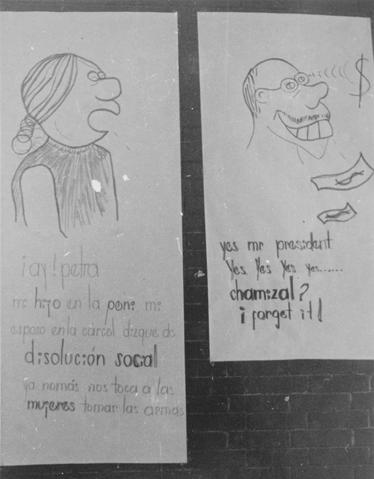 ¡ay! petra
mi hijo en la poni mi
esposo en la cárcel dizque de
disolución social
ya nomás nos toca a las
mujeres tomar las armas
$
yes mr president
Yes Yes Yes yes......
chamizal?
¡ forget it!